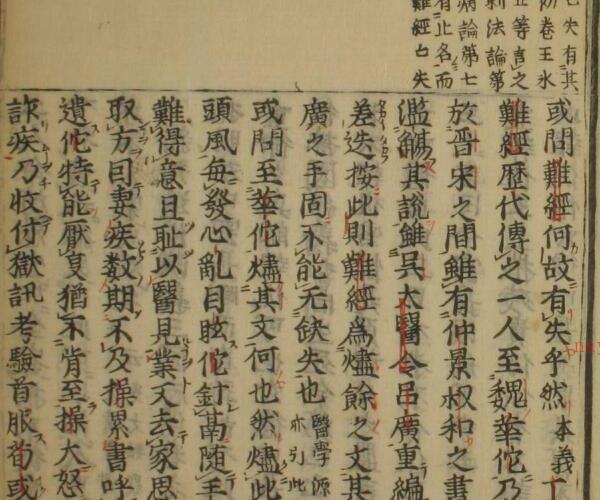 七失有其
劝卷王氷
立等言之
刺法論第
病論第七
有止名而
難經亡失
或問難經何故有失乎然本義
難經歷代傳之一人至魏華佗乃
於晋宋之間雖有仲景叔和之書
濫觴其說雖吳太醫令呂廣重編
差迭按此則難經為燼餘之文其
廣之手固不能无缺失也醫學源
亦引此
或問至華佗燼其文何也然燼此
頭風每發心亂目眩佗針鬲随手
難得意且耻以醫見業又去家思
取方曰妻疾数期不及操累書呼
遺佗特能厭㕝猶不肯至操大怒
詐疾乃收付獄訊考驗首服荀或